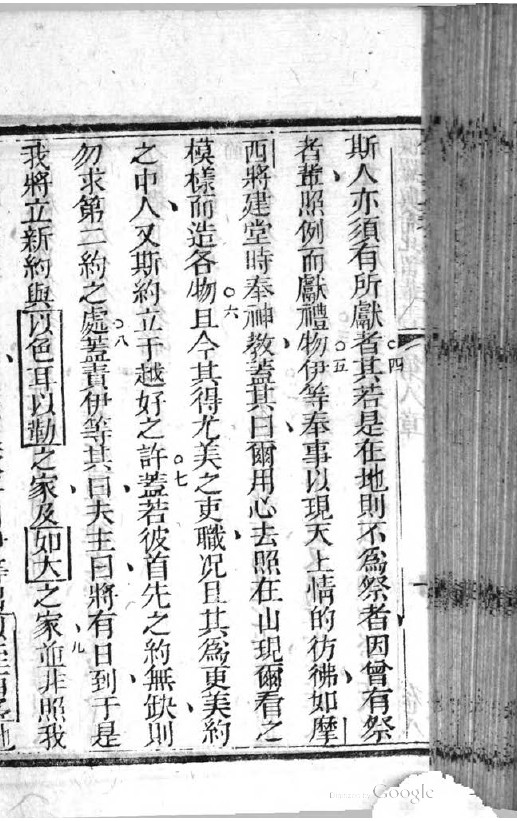 斯人亦須有所獻者。四其若是在地則不爲祭者因曾有祭
者輩照例而獻禮物。五伊等奉事以現天上情的彷彿如摩
西將建堂時奉神教蓋其曰爾用心去照在山現爾看之
模樣而造各物。六且今其得尤美之吏職况且其爲更美約
之中人又斯約立于越好之許。七蓋若彼首先之約無缺則
勿求第二約之處。八蓋責伊等其曰夫主曰將有日到于是
我將立新約與以色耳以勒之家及如大之家九並非照我
Google